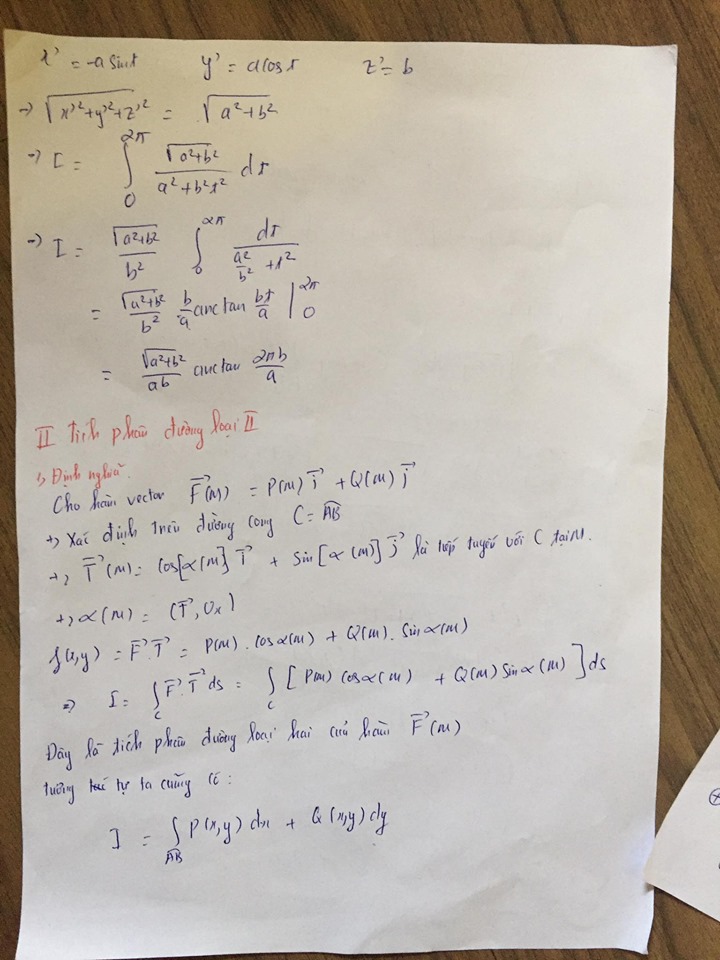 x' = -a sint y' = a cost z' = b
→ √(x'²+y'²+z'²) = √(a²+b²)
→ I = ∫₀^{2π} √(a²+b²)/(a²+b²t²) dt
→ I = √(a²+b²)/b² ∫₀^{2π} dt/(a²/b² + t²)
= √(a²+b²)/b² b/a arctan bt/a |₀^{2π}
= √(a²+b²)/ab arctan 2πb/a
II Tích phân đường loại II
1, Định nghĩa.
Cho hàm vector F⃗(M) = P(M) i⃗ + Q(M) j⃗
+, Xác định trên đường cong C = AB
+, T⃗(M) = cos[α(M)] i⃗ + sin[α(M)] j⃗ là tiếp tuyến với C tại M.
+, α(M) = (T⃗, Ox)
f(x,y) = F⃗.T⃗ = P(M). cosα(M) + Q(M). Sinα(M)
⇒ I = ∫_C F⃗.T⃗ ds = ∫_C [P(M) cosα(M) + Q(M) Sinα(M)] ds
Đây là tích phân đường loại hai của hàm F⃗(M)
tương tự ta cũng có :
I = ∫_{AB} P(x,y) dx + Q(x,y) dy